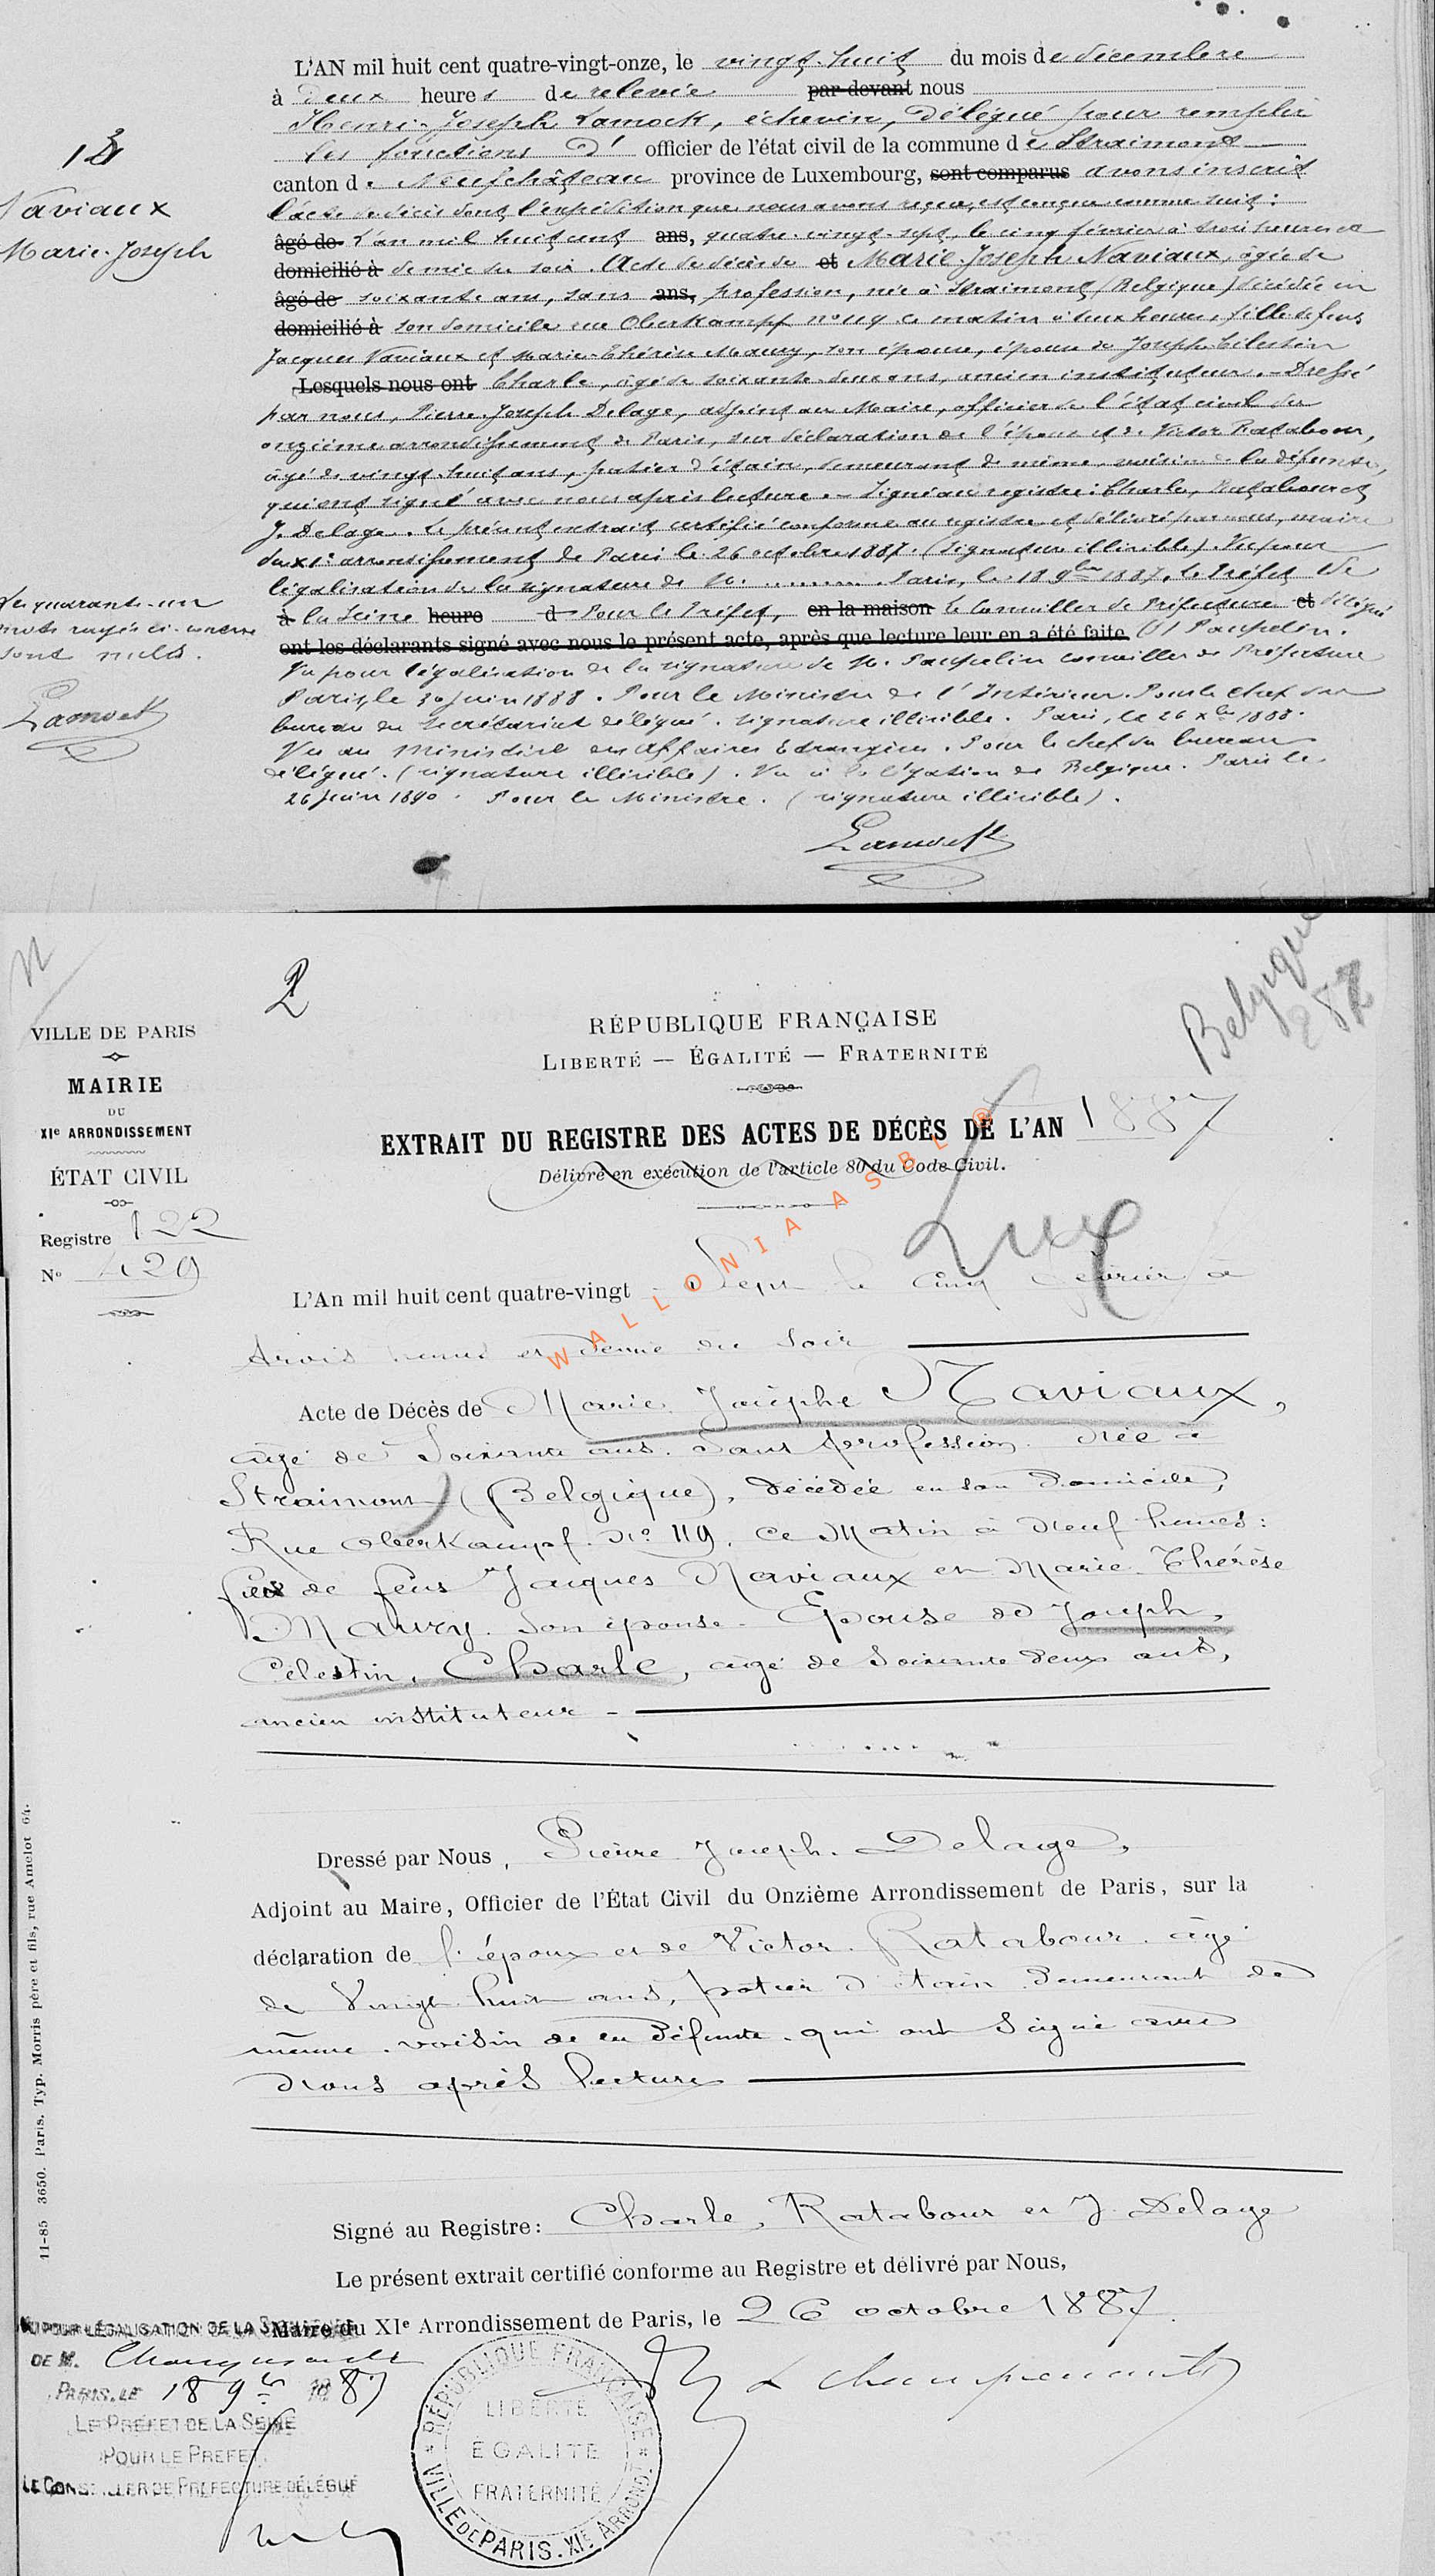 L'AN mil huit cent quatre-vingt-onze, le vingt-huit du mois de décembre
à deux heures de relevée par-devant nous
Henri-Joseph Lamock, échevin, délégué pour remplir
les fonctions d' officier de l'état civil de la commune de Straimont
canton de Neufchâteau province de Luxembourg, sont comparus avons inscrit
l'acte de décès dont l'expédition que nous avons reçue, est conçue comme suit :
âgé de L'an mil huit cent ans, quatre-vingt-sept, le cinq février à trois heures et
domicilié à demie du soir. Acte de décès de et Marie-Joseph Naviaux, âgée de
âgé de soixante ans, sans ans, profession, née à Straimont (Belgique) décédée en
domicilié à son domicile rue Oberkampf n° 119 ce matin à heures, fille de feus
Jacques Naviaux et Marie-Thérèse Maury, son épouse, épouse de Joseph Célestin
Lesquels nous ont Charle, âgé de soixante-deux ans, ancien instituteur. — Dressé
par nous, Pierre-Joseph Delage, adjoint au Maire, officier de l'état civil du
onzième arrondissement de Paris, sur déclaration de l'époux et de Victor Ratabour,
âgé de vingt-huit ans, potier d'étain, demeurant de même, voisin de la défunte,
qui ont signé avec nous après lecture. — Signé au registre : Charle, Ratabour et
J. Delage. Le présent extrait certifié conforme au registre et délivré par nous, maire
du XIe arrondissement de Paris le 26 octobre 1887. (Signature illisible). Vu pour
légalisation de la signature de M. ........ Paris, le 18 9bre 1887, le Préfet de
à la Seine heure d Pour le Préfet, en la maison le Conseiller de Préfecture et délégué
ont les déclarants signé avec nous le présent acte, après que lecture leur en a été faite (S) Paupelin.
Vu pour légalisation de la signature de M. Paupelin conseiller de Préfecture
Paris, le 30 juin 1888. Pour le Ministre de l'Intérieur. Pour le chef du
bureau du Secrétariat délégué. signature illisible. Paris, le 26 xbre 1888.
Vu au Ministère des Affaires Etrangères. Pour le chef du bureau
délégué. (signature illisible). Vu à la légation de Belgique. Paris le
26 juin 1890. Pour le Ministre. (signature illisible).
Lamock
Naviaux
Marie-Joseph
Les quarante-un
mots rayés ci-contre
sont nuls.
Lamock
2
Belgique
287
VILLE DE PARIS
MAIRIE
DU
XIe ARRONDISSEMENT
ÉTAT CIVIL
Registre 122
No 429
RÉPUBLIQUE FRANÇAISE
LIBERTÉ — ÉGALITÉ — FRATERNITÉ
EXTRAIT DU REGISTRE DES ACTES DE DÉCÈS DE L'AN 1887
Délivré en exécution de l'article 80 du Code Civil.
Lux
WALLONIA ASBL ®
L'An mil huit cent quatre-vingt Sept le Cinq février à
trois heures et demie du Soir
Acte de Décès de Marie Josèphe Naviaux,
âgé de Soixante ans. Sans profession. Née à
Straimont (Belgique), décédée en son Domicile,
Rue Oberkampf. No 119. Ce Matin à Neuf heures :
fille de feus Jacques Naviaux et Marie Thérèse
Maury. Son épouse. Epouse de Joseph,
Célestin, Charle, âgé de Soixante Deux ans,
ancien instituteur
Dressé par Nous, Pierre Joseph. Delage,
Adjoint au Maire, Officier de l'État Civil du Onzième Arrondissement de Paris, sur la
déclaration de l'époux et de Victor. Ratabour. âgé
de Vingt huit ans, potier d'étain Demeurant de
même. voisin de la Défunte. qui ont Signé avec
Nous après lecture
Signé au Registre : Charle, Ratabour et J. Delage
Le présent extrait certifié conforme au Registre et délivré par Nous,
Maire du XIe Arrondissement de Paris, le 26 octobre 1887
VU POUR LÉGALISATION DE LA SIGNATURE
DE M.
PARIS, LE 18 9bre 1887
LE PRÉFET DE LA SEINE
POUR LE PRÉFET,
LE CONSEILLER DE PRÉFECTURE DÉLÉGUÉ
RÉPUBLIQUE FRANÇAISE
LIBERTÉ
ÉGALITÉ
FRATERNITÉ
VILLE DE PARIS. XIe ARRONDT
11-85 3650. Paris. Typ. Morris père et fils, rue Amelot 64.